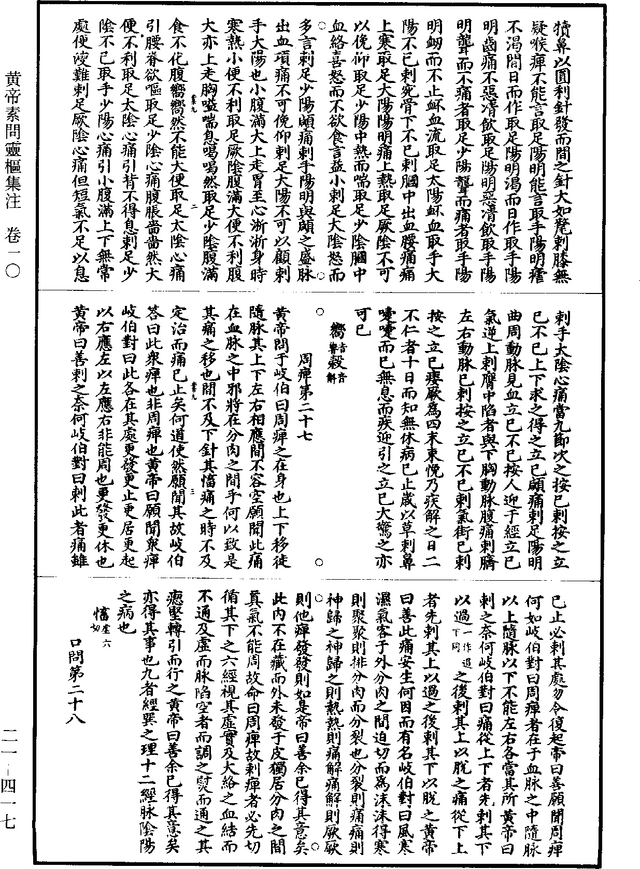 黃帝素問靈樞集注 卷二〇
二一－四一七
犢鼻以圓利針發而間之針大如氂刺膝無
疑喉痺不能言取足陽明能言取手陽明瘧
不渴間日而作取足陽明渴而日作取手陽
明齒痛不惡清飲取足陽明惡清飲取手陽
明聾而不痛者取足少陽聾而痛者取手陽
明衂而不止衃血流取足太陽衃血取手太
陽不已刺宛骨下不已刺膕中出血腰痛痛
上寒取足太陽陽明痛上熱取足厥陰不可
以俛仰取足少陽中熱而喘取足少陰膕中
血絡喜怒而不欲食言益小刺足太陰怒而
多言刺足少陽顑痛刺手陽明與顑之盛脉
出血項痛不可俛仰刺足太陽不可以顧刺
手太陽也小腹滿大上走胃至心淅淅身時
寒熱小便不利取足厥陰腹滿大便不利腹
大亦上走胸嗌喘息喝喝然取足少陰腹滿
食不化腹嚮嚮然不能大便取足太陰心痛
引腰脊欲嘔取足少陰心痛腹脹嗇嗇然大
便不利取足太陰心痛引背不得息刺足少
陰不已取手少陽心痛引小腹滿上下無常
處便溲難刺足厥陰心痛但短氣不足以息
刺手太陰心痛當九節次之按已刺按之立
已不已上下求之得之立已顑痛刺足陽明
曲周動脉見血立已不已按人迎于經立已
氣逆上刺膺中陷者與下胸動脉腹痛刺臍
左右動脉已刺按之立已不已刺氣街已刺
按之立已痿厥爲四末束悗乃疾解之日二
不仁者十日而知無休病已止歲以草刺鼻
嚏嚏而已無息而疾迎引之立已大驚之亦
可已
周痺第二十七
黃帝問于歧伯曰周痺之在身也上下移徙
隨脉其上下左右相應間不容空願聞此痛
在血脉之中邪將在分肉之間乎何以致是
其痛之移也間不及下針其慉痛之時不及
定治而痛已止矣何道使然願聞其故歧伯
答曰此衆痺也非周痺也黃帝曰願聞衆痺
歧伯對曰此各在其處更發更止更居更起
以右應左以左應右非能周也更發更休也
黃帝曰善刺之奈何歧伯對曰刺此者痛雖
已止必刺其處勿令復起帝曰善願聞周痺
何如歧伯對曰周痺者在于血脉之中隨脉
以上隨脉以下不能左右各當其所黃帝曰
刺之奈何歧伯對曰痛從上下者先刺其下
以過一作遏下同之後刺其上以脫之痛從下上
者先刺其上以過之後刺其下以脫之黃帝
曰善此痛安生何因而有名歧伯對曰風寒
濕氣客于外分肉之間迫切而爲沫沫得寒
則聚聚則排分肉而分裂也分裂則痛痛則
神歸之神歸之則熱熱則痛解痛解則厥厥
則他痺發發則如是帝曰善余已得其意矣
此内不在藏而外未發于皮獨居分肉之間
真氣不能周故命曰周痺故刺痺者必先切
循其下之六經視其虛實及大絡之血結而
不通及虛而脉陷空者而調之熨而通之其
瘛堅轉引而行之黃帝曰善余已得其意矣
亦得其事也九者經巽之理十二經脉陰陽
之病也
口問第二十八